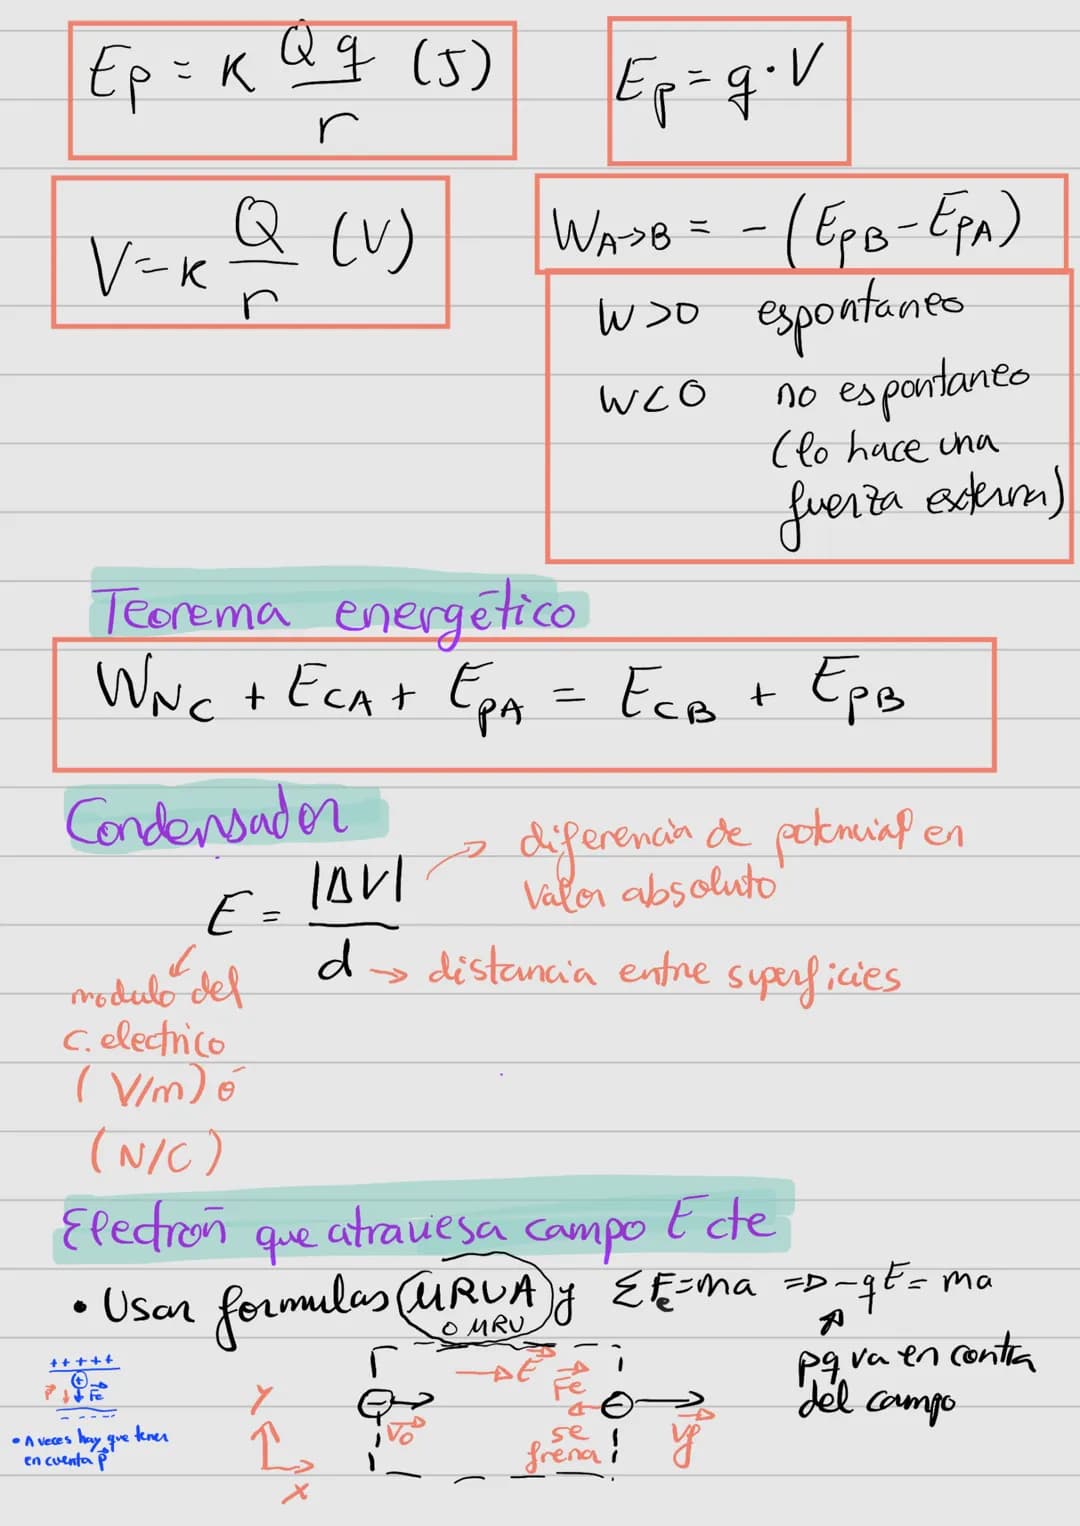 Ep = K Qq/r (J)
Ep = q · V
V = K Q/r (V)
WA->B = - (EpB - EpA)
W > 0 espontaneo
W < 0 no espontaneo
(lo hace una
fuerza externa)
Teorema energético
WNC + ECA + EpA = ECB + EpB
Condensador
E = |ΔV|/d
→ diferencia de potencial en
valor absoluto
→ distancia entre superficies
modulo del
c. electrico
(V/m) ó
(N/C)
Electron que atraviesa campo E cte
• Usar formulas MRUA y ΣFe = ma => -qE = ma
o MRU
pq va en contra
del campo
+ + + + +
+
P Fe
- - - - -
• A veces hay que tener
en cuenta P
Y
X
E
Fe
Vo
se
frena
Vf